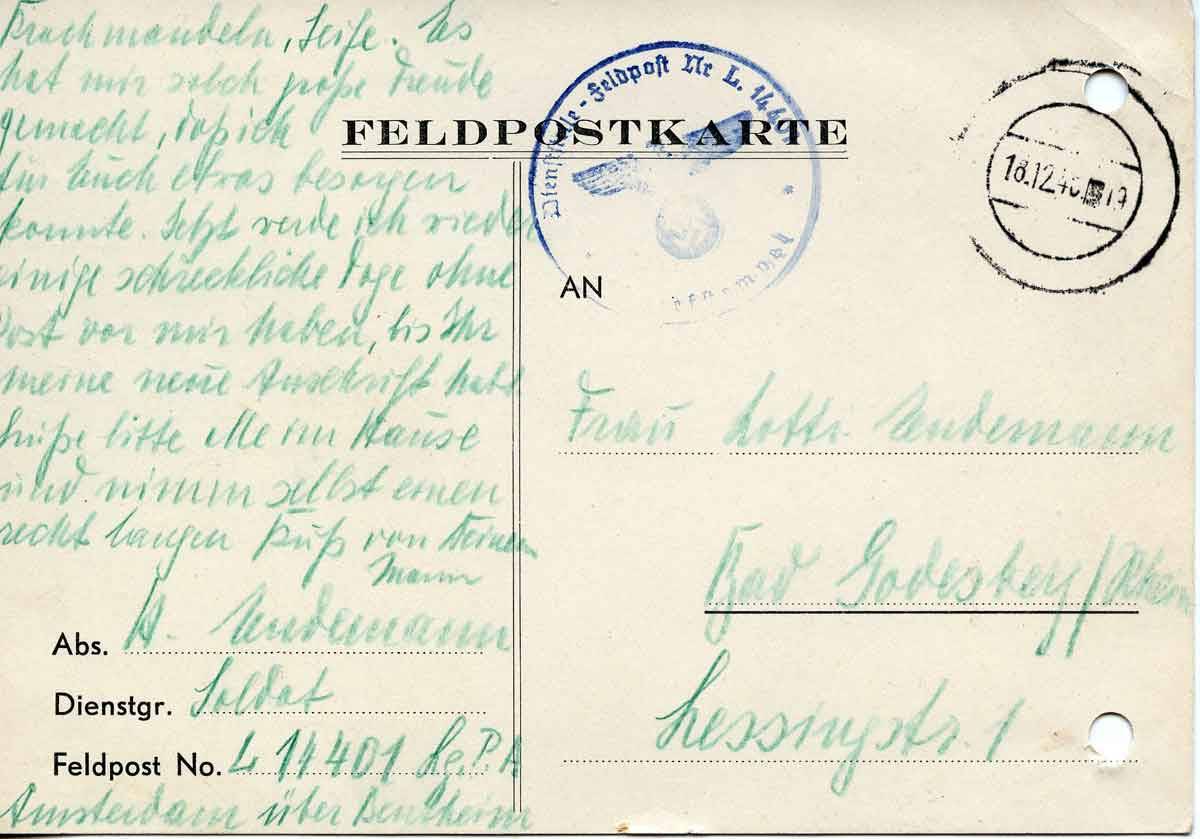 Krachmandeln, Seife. Es
hat mir solch große Freude
gemacht, daß ich
für Euch etwas besorgen
konnte. Jetzt werde ich wieder
einige schreckliche Tage ohne
Post vor mir haben, bis Ihr
meine neue Anschrift habt
Grüße bitte alle im Hause
und nimm selbst einen
recht langen Kuß von Deinem
Mann
Abs. A. Endemann
Dienstgr. Soldat
Feldpost No. L 11401 Lg.P.A
Amsterdam über Bentheim
FELDPOSTKARTE
Dienststelle - Feldpost Nr L.
18.12.40
AN
Frau Lotte Endemann
Bad Godesberg/Rhein
Lessingstr. 1